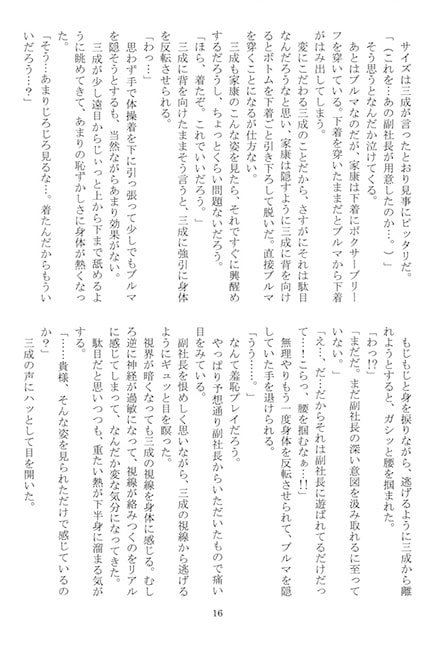 サイズは三成が言ったとおり見事にピッタリだ。
「（これを…あの副社長が用意したのか…。）」
そう思うとなんだか泣けてくる。
あとはブルマなのだが、家康は下着にボクサーブリー
フを穿いている。下着を穿いたままだとブルマから下着
がはみ出してしまう。
変にこだわる三成のことだから、さすがにそれは駄目
なんだろうなと思い、家康は隠すように三成に背を向け
るとボトムを下着ごと引き下ろして脱いだ。直接ブルマ
を穿くことになるが仕方ない。
三成も家康のこんな姿を見たら、それですぐに興醒め
するだろうし、ちょっとくらい問題ないだろう。
「ほら、着たぞ。これでいいだろう。」
三成に背を向けたままそう言うと、三成に強引に身体
を反転させられる。
「わっ…」
思わず手で体操着を下に引っ張って少しでもブルマ
を隠そうとするも、当然ながらあまり効果がない。
三成が少し遠目からじぃっと上から下まで舐めるよ
うに眺めてきて、あまりの恥ずかしさに身体が熱くなっ
た。
「そう…あまりじろじろ見るな…。着たんだからもうい
いだろう…？」
もじもじと身を捩りながら、逃げるように三成から離
れようとすると、ガシッと腰を掴まれた。
「わっ!?」
「まだだ。まだ副社長の深い意図を汲み取れるに至って
いない。」
「え…、だ…だからそれは副社長に遊ばれてるだけだっ
て…！こらっ、腰を掴むなぁ…!!」
無理やりもう一度身体を反転させられて、ブルマを隠
していた手を退けられる。
「うう……。」
なんて羞恥プレイだろう。
やっぱり予想通り副社長からいただいたもので痛い
目をみている。
副社長を恨めしく思いながら、三成の視線から逃げる
ようにギュッと目を瞑った。
視界が暗くなっても三成の視線を身体に感じる。むし
ろ逆に神経が過敏になって、視線が絡みつくのをリアル
に感じてしまって、なんだか変な気分になってきた。
駄目だと思いつつも、重たい熱が下半身に溜まる気が
する。
「……貴様、そんな姿を見られただけで感じているの
か？」
三成の声にハッとして目を開いた。
16